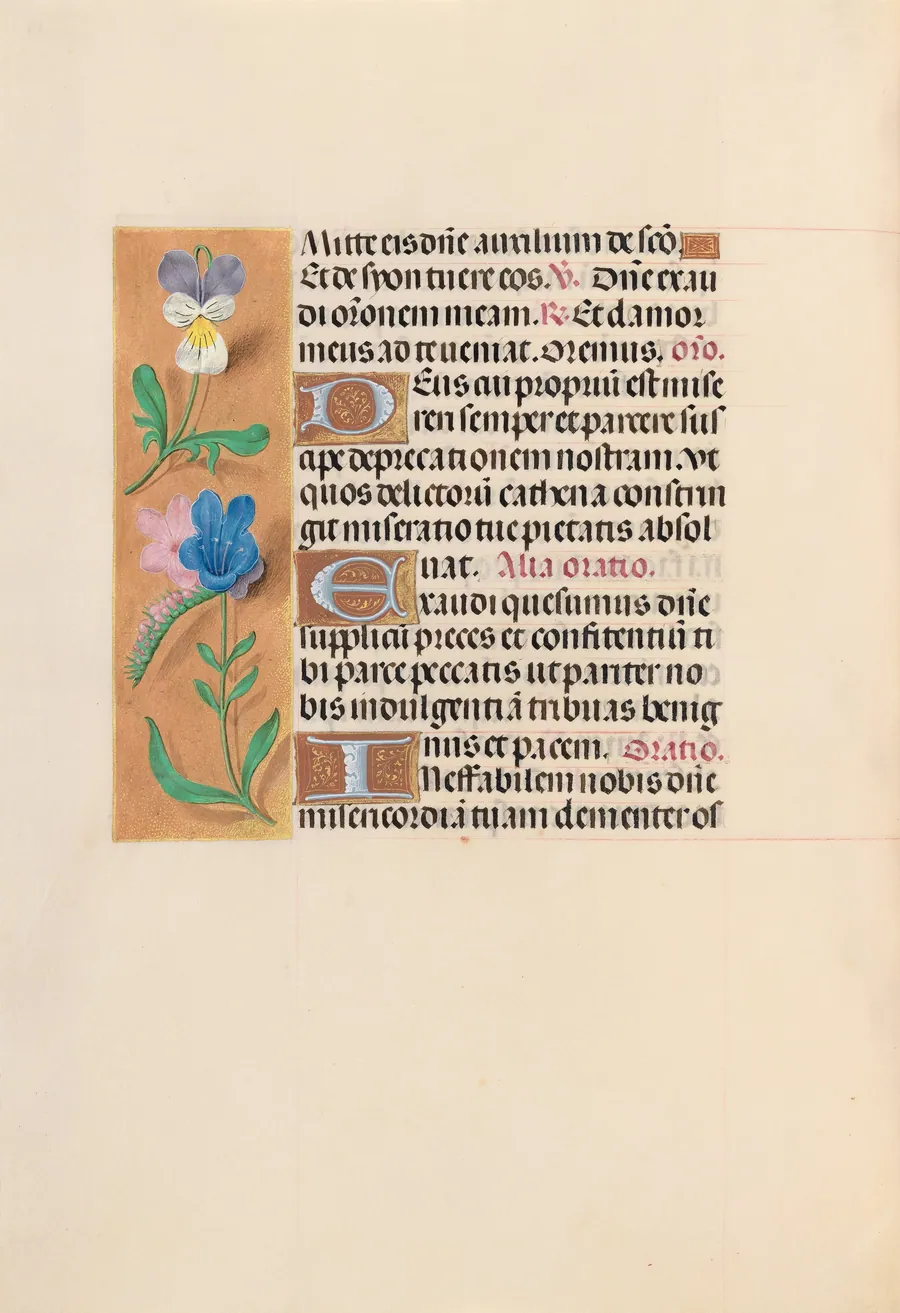 Mitte eis dn̄e auxilium de sc̄o.
Et de syon tuere eos. V. Dn̄e exau
di or̄onem meam. R. Et clamor
meus ad te ueniat. Oremus. or̄o.
DEus cui propriū est mise
reri semper et parcere sus
cipe deprecationem nostram. Vt
quos delictorū cathena constrin
git miseratio tue pietatis absol
uat. Alia oratio.
Exaudi quesumus dn̄e
supplicū preces et confitentiū ti
bi parce peccatis ut pariter no
bis indulgentiā tribuas benig
nus et pacem. Oratio.
INeffabilem nobis dn̄e
misericordiā tuam clementer os